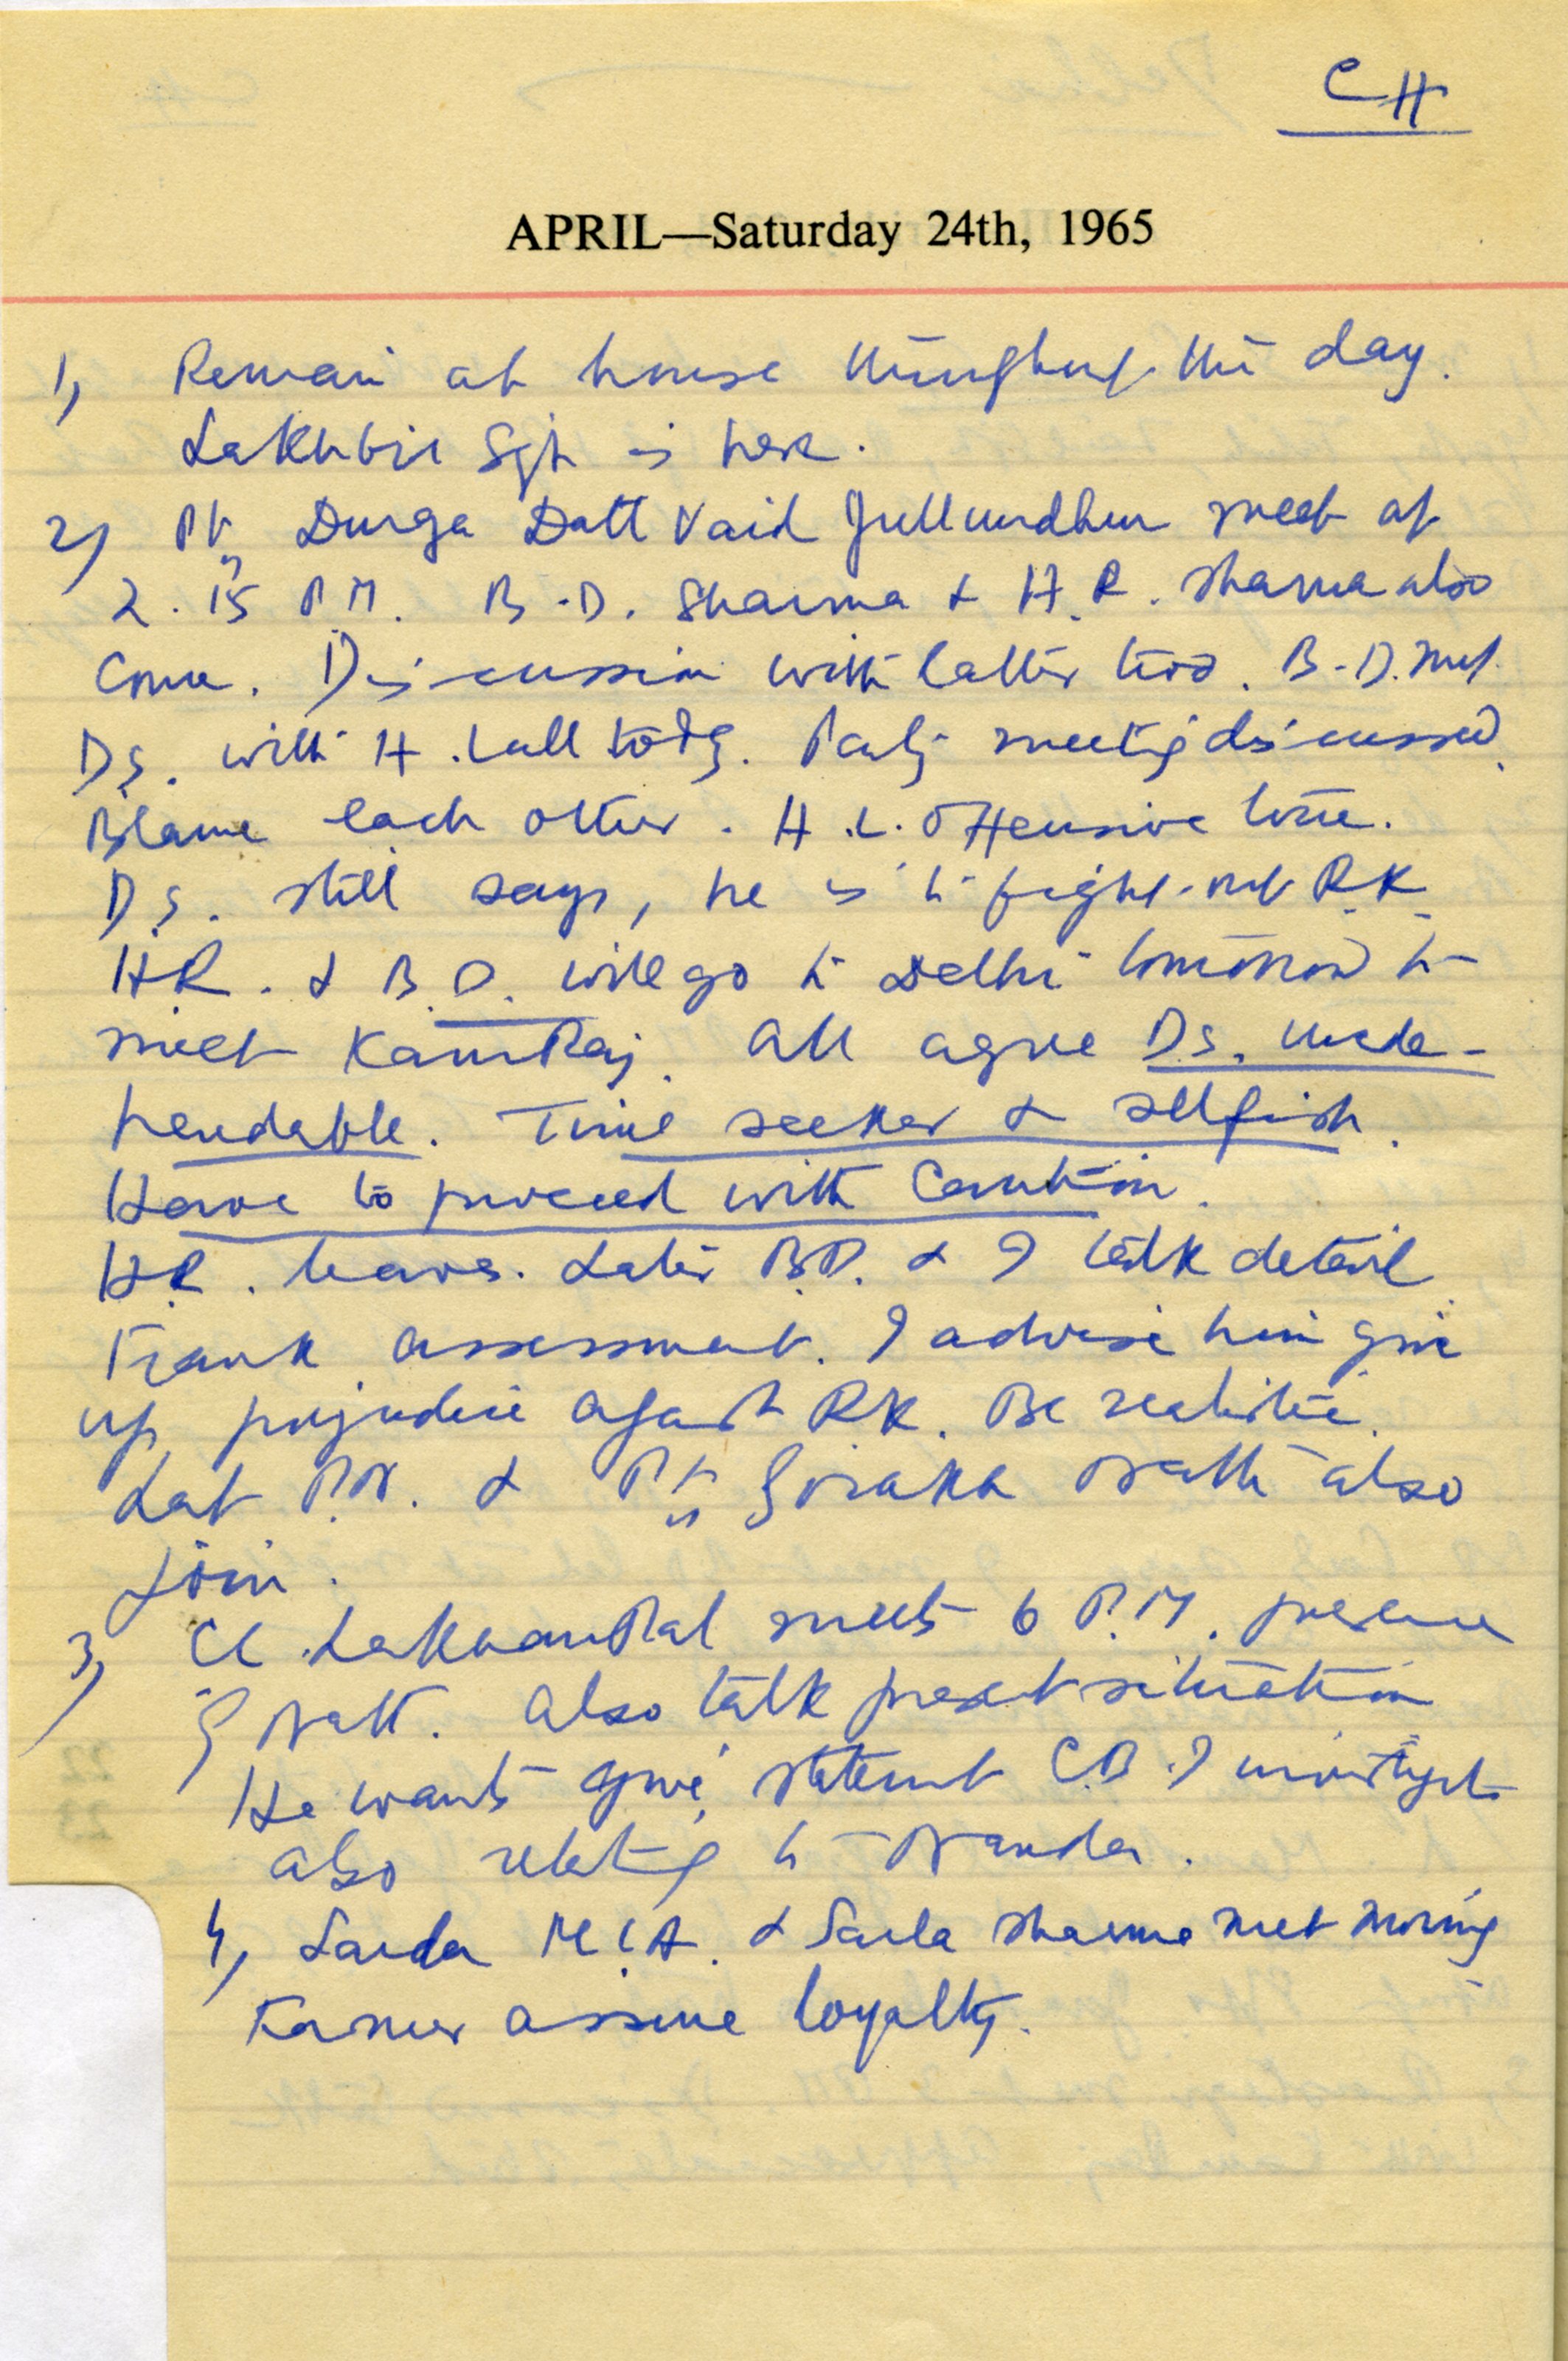 CH
APRIL—Saturday 24th, 1965
1) Remain at house throughout the day.
Lakhbir Sgh is here.
2) Pt. Durga Datt Vaid Jullundhur meet at
2.15 P.M. B.D. Sharma & H.R. Sharma also
come. Discussion with latter two. B.D. met
D.S. with H. Lall today. Party meeting discussed.
Blame each other. H.L. offensive tone.
D.S. still says, he is to fight out R.K.
H.R. & B.D. will go to Delhi tomorrow to
meet KamRaj. All agree D.S. unde-
pendable. Time seeker & selfish.
Have to proceed with Caution.
H.R. leaves. Later B.D. & I talk detail.
Frank assessment. I advise him give
up prejudice against RK. Be realistic.
Lat P.N. & Pt. Gorakh Nath also
join.
3) Ch. LakhanPal meets 6 P.M. presence
G Nath. Also talk present situation
He wants give statement C.B.I investigate
also relating to Nanda.
4) Sarda M.L.A. & Sarla Sharma met morning
Former assure loyalty.